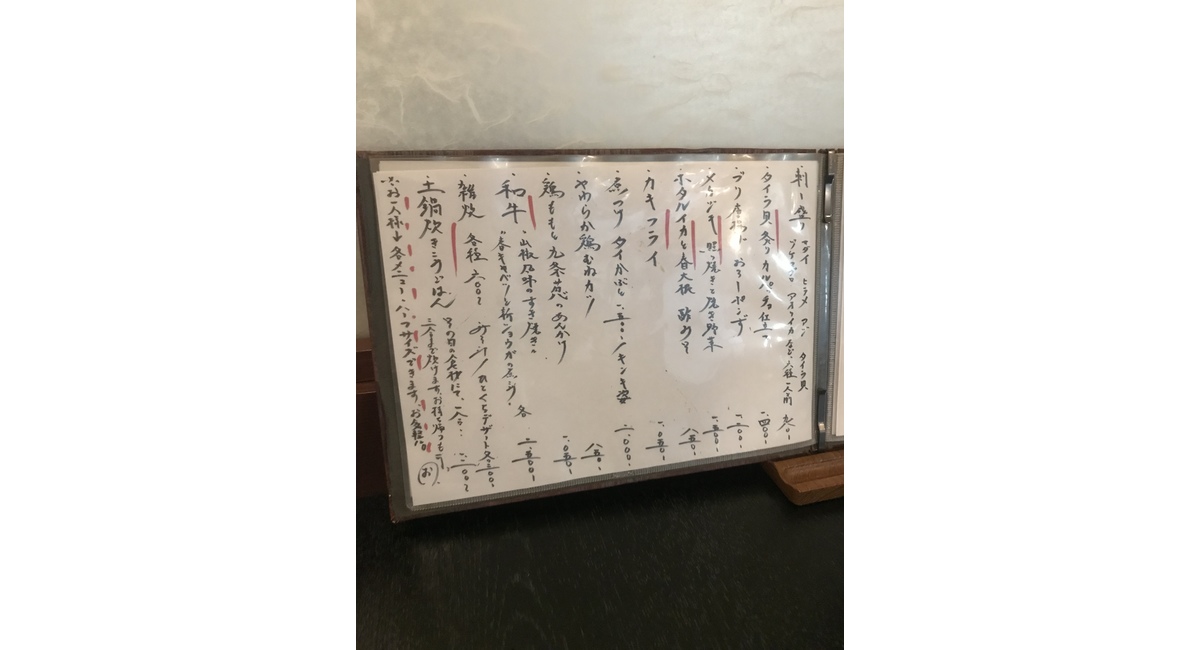 ・刺し盛り マダイ ヒラメ アジ タイラ貝
アオリイカ など 六種 一人前 九〇〇-
・タイラ貝 炙り カルパッチョ仕立て 一.四〇〇-
・ブリ おろしポンず 一.二〇〇-
・メカジキ 照り焼きと焼き野菜 一.五〇〇-
・ホタルイカと春大根 酢みそ 八五〇-
・カキフライ 一.〇五〇-
・煮つけ タイかぶと 一.五〇〇-/キンキ姿 二.〇〇〇-
・やわらか鶏むねカツ 八五〇-
・鶏ももと九条葱のあんかけ 一.〇五〇-
・和牛 ・山椒風味のすき焼き
・春キャベツと新ショウガの煮 各 二.五〇〇-
・雑炊 各種 六〇〇~ みそ汁/ひとくちデザート 各三〇〇-
・土鍋炊きこみごはん その日の食材にて、一人
二人まで炊けます。お持ち帰りも可。
※お一人様↓各メニュー、ハーフサイズできます。お気軽に。
お